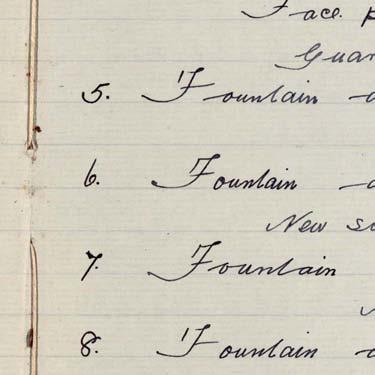 Face
Guar
5. Fountain
6. Fountain
New
7. Fountain
8. Fountain